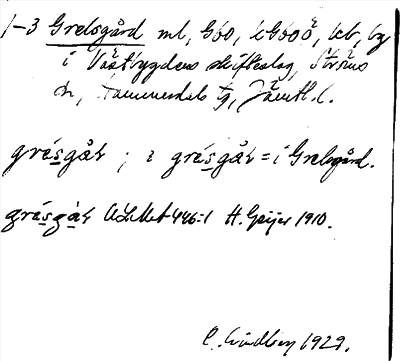 1-3 Grelsgård ml, Göo, LGöoö, kt, by
i Västbygdens skifteslag, Ströms
sn, Hammerdals tg, Jämtl. l.
grésgår ; i grésgår = i Grelsgård.
grésgàr ULMA 446:1 H. Geijer 1910.
C. Lindberg 1929.